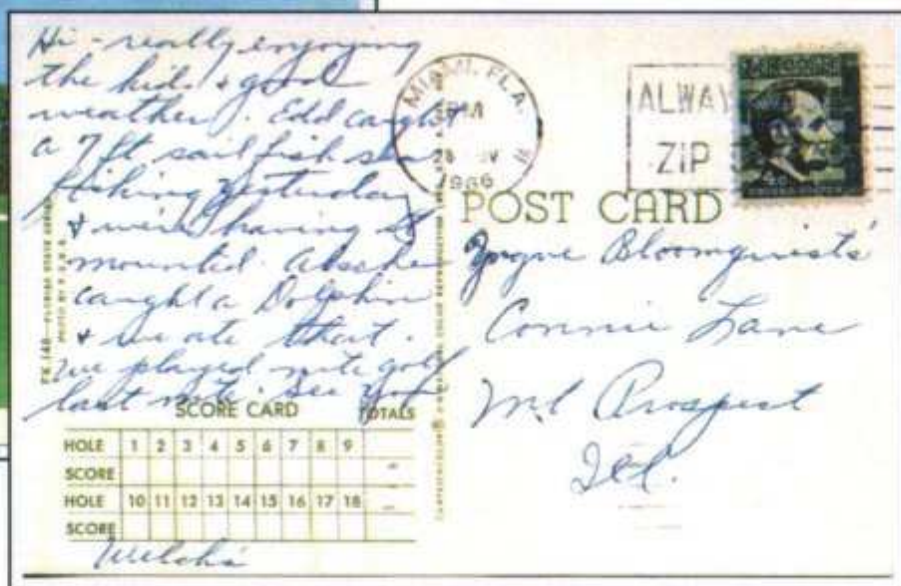 Hi - really enjoying
the kids & good
weather. Edd caught
a 7 ft. sailfish
fishing yesterday
& we're having it
mounted. Also he
caught a Dolphin
& we ate that.
We played nite golf
last nite. See you
Welch's
SCORE CARD TOTALS
HOLE 1 2 3 4 5 6 7 8 9
SCORE
HOLE 10 11 12 13 14 15 16 17 18
SCORE
MIAMI, FLA.
PM
1966
ALWAY
ZIP
POST CARD
Yngve Bloomquist's
Connie Lane
Mt Prospect
Ill.